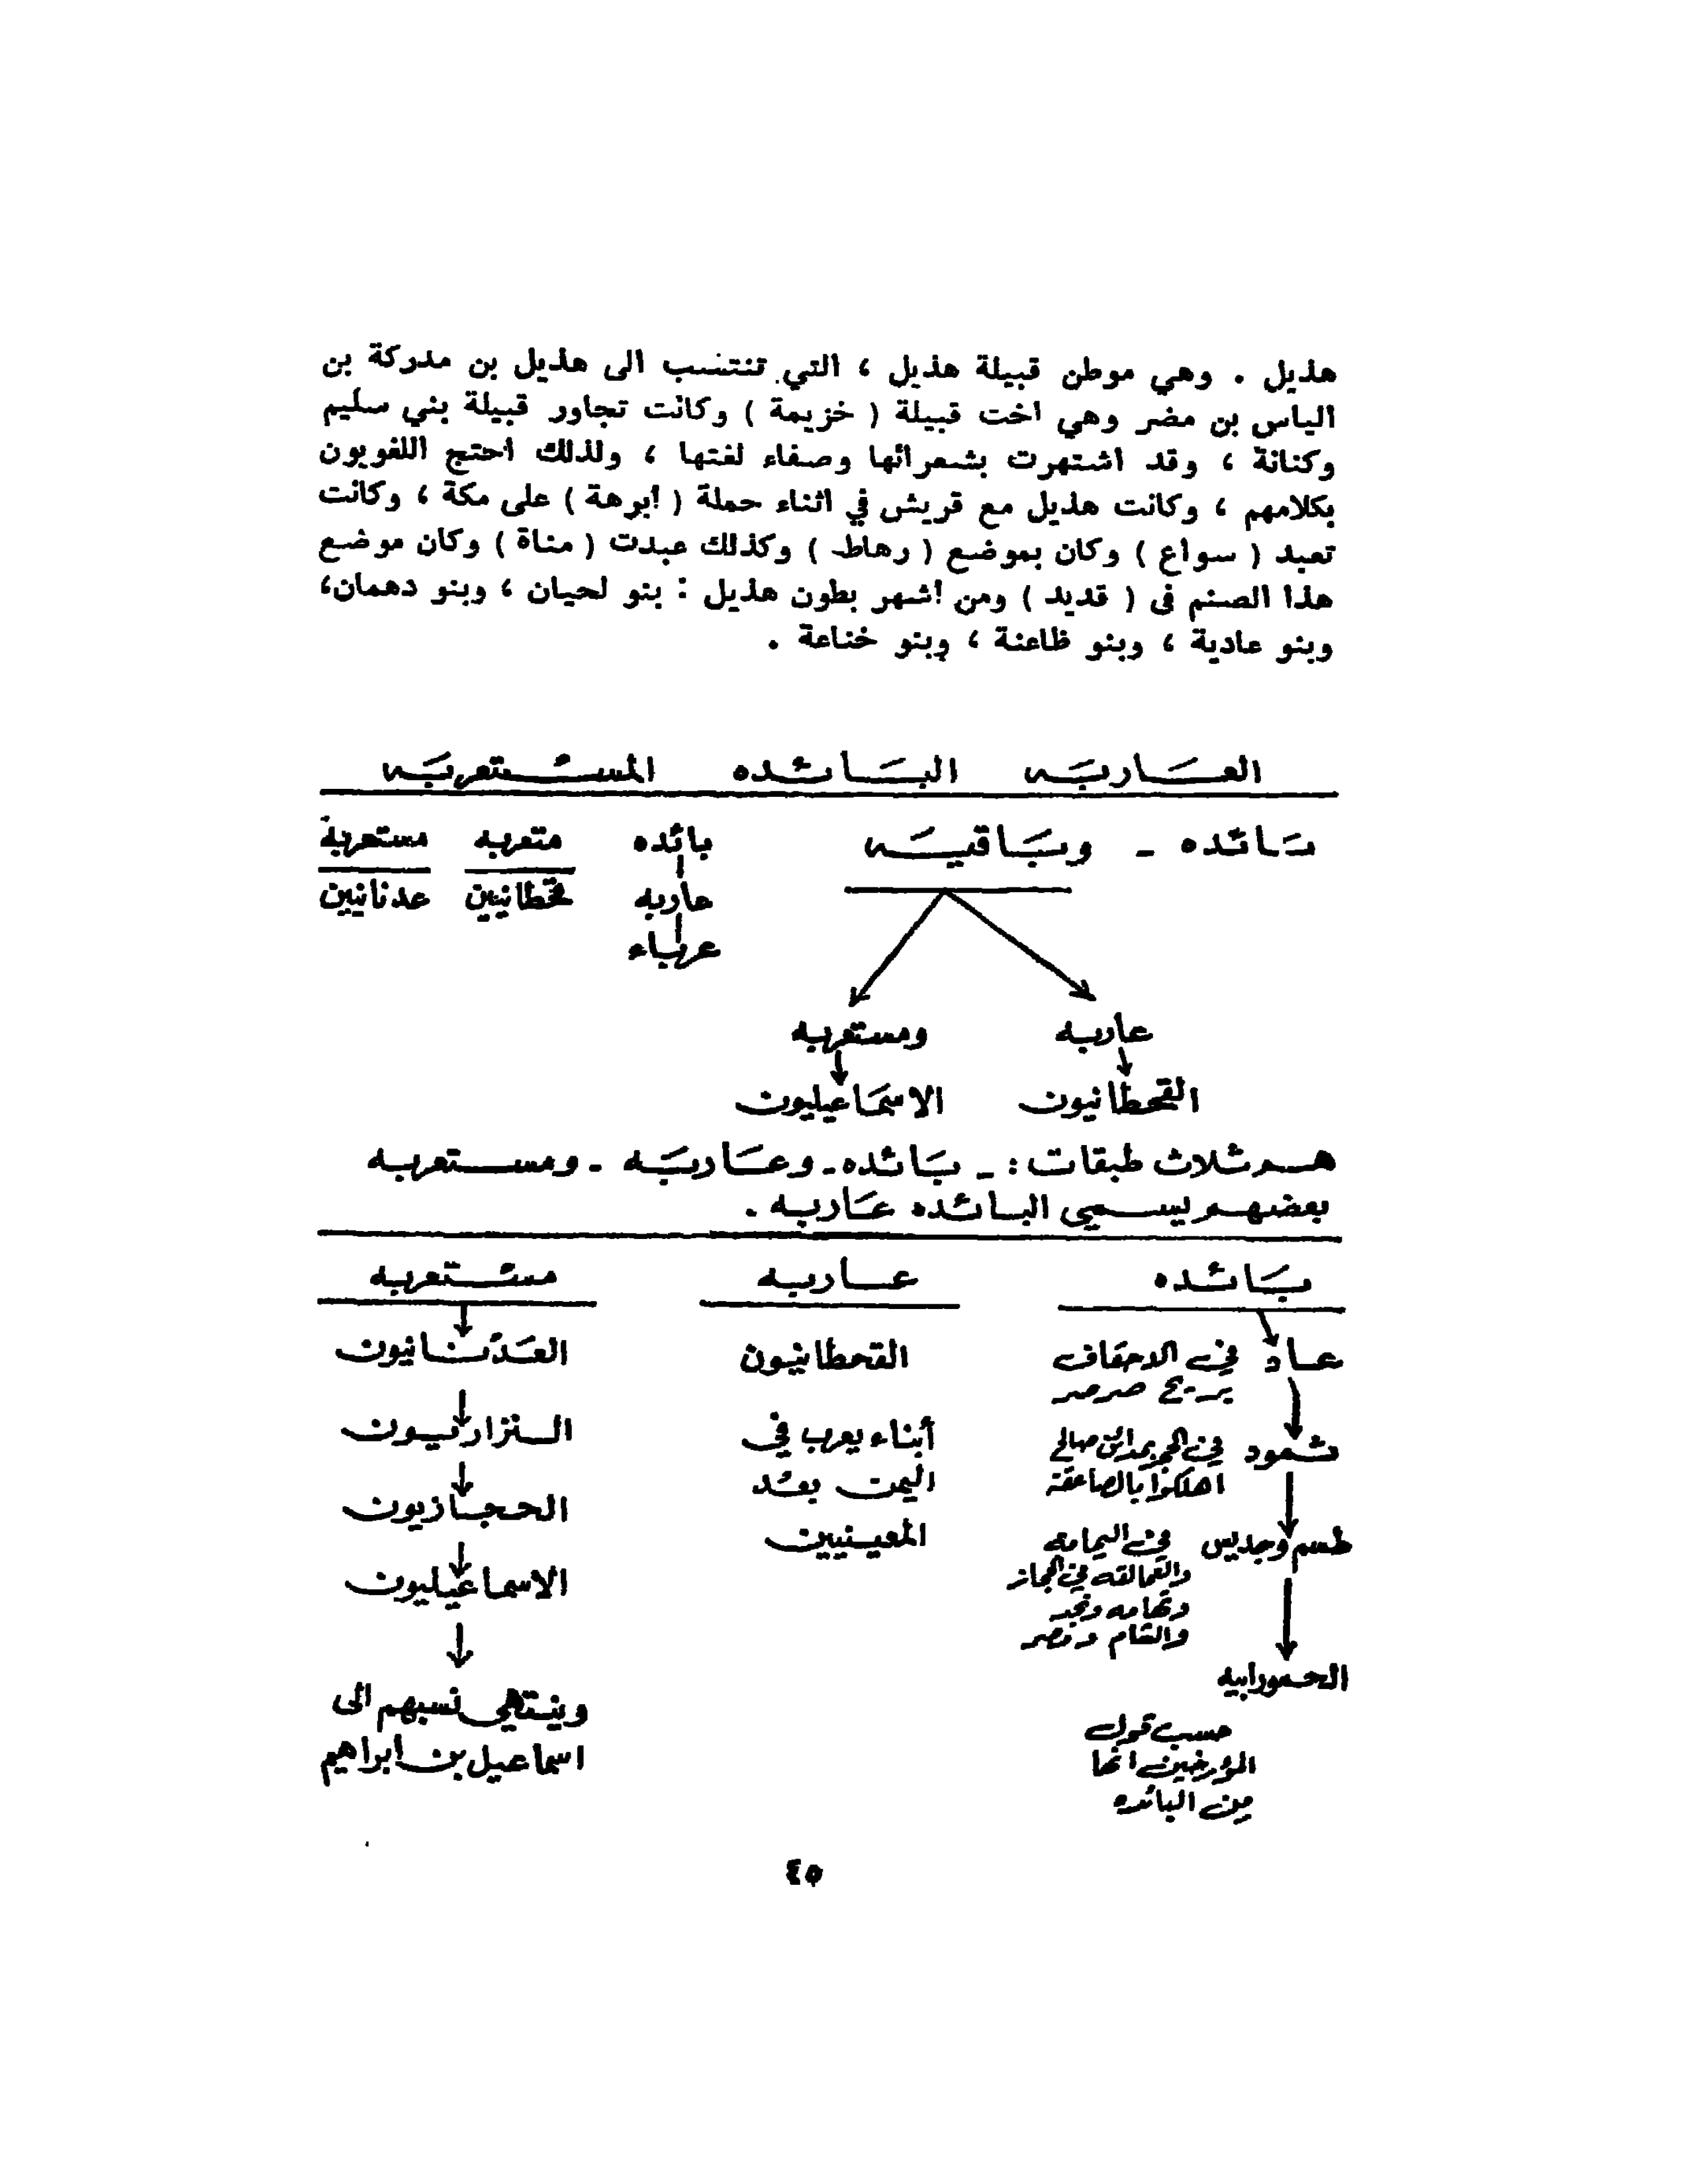 هذيل . وهي موطن قبيلة هذيل ، التي تنتسب الى هذيل بن مدركة بن
الياس بن مضر وهي اخت قبيلة ( خزيمة ) وكانت تجاور قبيلة بني سليم
وكنانة ، وقد اشتهرت بشعرائها وصفاء لغتها ، ولذلك احتج اللغويون
بكلامهم ، وكانت هذيل مع قريش في اثناء حملة ( أبرهة ) على مكة ، وكانت
تعبد ( سواع ) وكان بموضع ( رهاط ) وكذلك عبدت ( مناة ) وكان موضع
هذا الصنم فى ( قديد ) ومن أشهر بطون هذيل : بنو لحيان ، وبنو دهمان،
وبنو عادية ، وبنو ظاعنة ، وبنو خناعة .
العاربه البائده المستعربه
بائده - وباقيه
بائده متعربه مستعربة
عاربه قحطانيين عدنانيين
عرباء
عاربه ومستعربه
القحطانيون الاسماعيليون
هم ثلاث طبقات : - بائده - وعاربه - ومستعربه
بعضهم يسمي البائده عاربه .
بائده عاربه مستعربه
عاد في الاحقاف
بريح صرصر
ثمود في الحجر بمدائن صالح
اهلكوا بالصاعقة
طسم وجديس في اليمامه
والعمالقه في الحجاز
وتهامه ونجد
والشام ومصر
الحمورابيه
حسب قول
المؤرخين انها
من البائده
القحطانيون
أبناء يعرب في
اليمن بعد
المعينيين
العدنانيون
النزاريون
الحجازيون
الاسماعيليون
وينتهي نسبهم الى
اسماعيل بن ابراهيم
٤٥